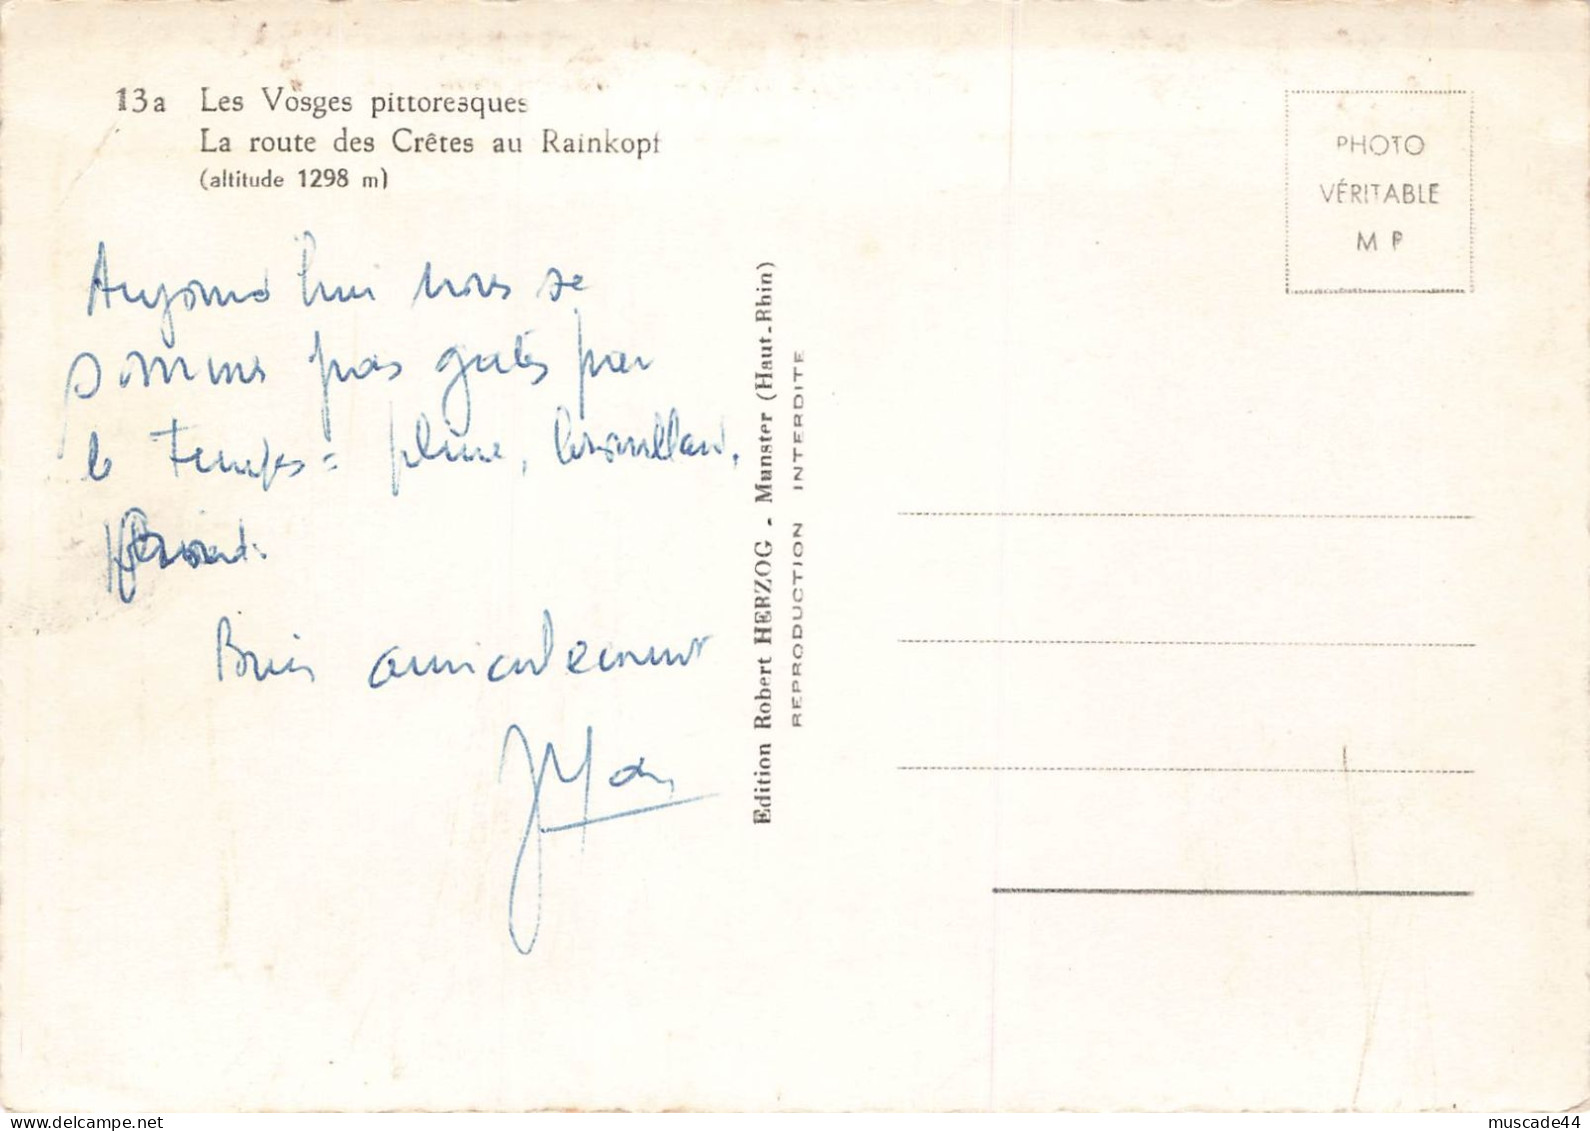 13a Les Vosges pittoresques
La route des Crêtes au Rainkopf
(altitude 1298 m)
Aujourd'hui nous ne
sommes pas gâtés par
le temps : pluie, brouillard,
froid.
Bien amicalement
PHOTO
VÉRITABLE
M P
Edition Robert HERZOG - Munster (Haut-Rhin)
REPRODUCTION INTERDITE
muscade44